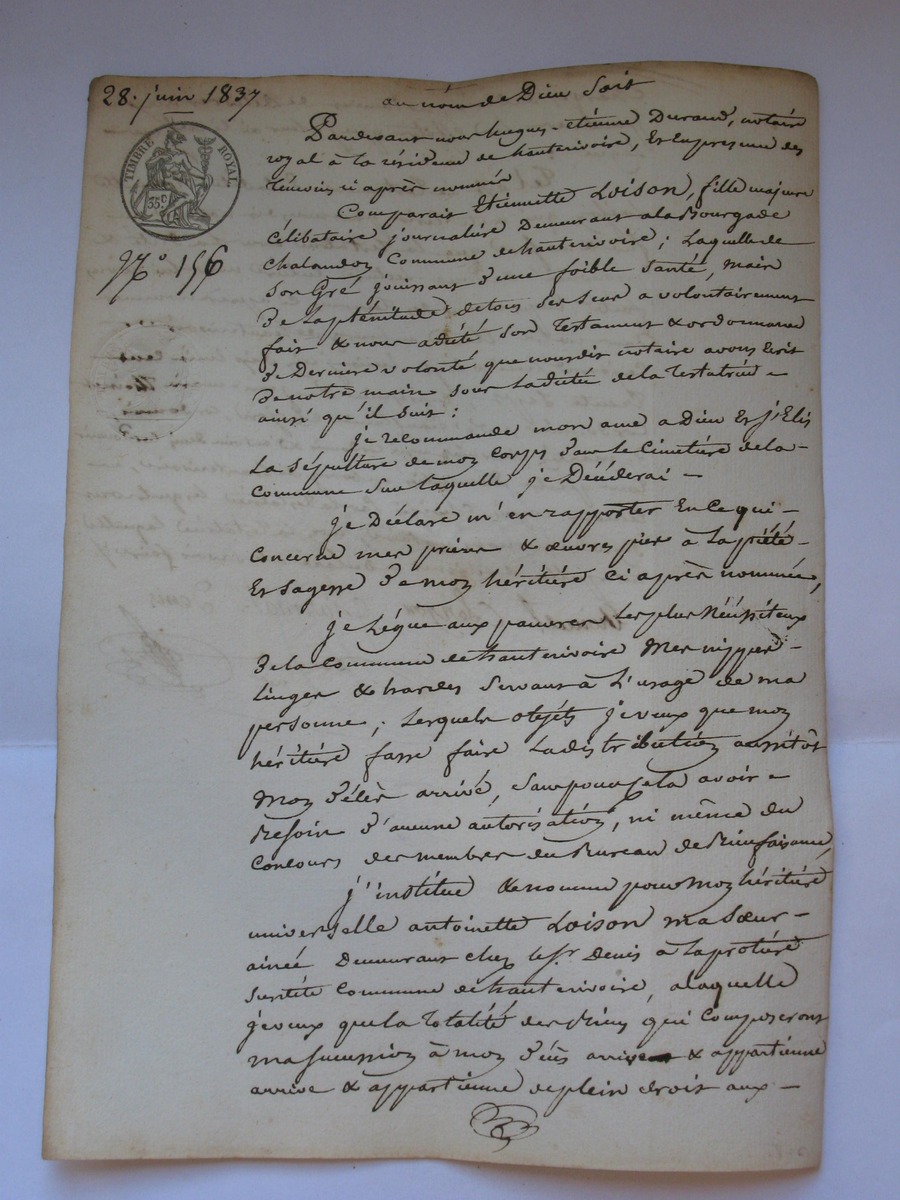 28. juin 1837
au nom de Dieu soit
TIMBRE ROYAL.
35 c
N.º 156
Pardevant nous hugues-étienne Durand, notaire
royal à la résidence de hauterivoire, Et En presence des
témoins ci après nommés
Comparait Etiennette Loison, fille majeure
célibataire journalière Demeurant a la Bourgade
chalandon Commune de hauterivoire; Laquelle de
son Gré jouissant d'une foible santé, mais
de La plénitude de tous ses sens a volontairement
fait & nous a dicté son Testament & ordonnance
de Derniere volonté que nous dit notaire avons Ecrit
de notre main sous La dictée de la Testatrice -
ainsi qu'il suit :
je recommande mon ame a Dieu Et j'Elis
La sépulture de mon corps dans Le Cimetière de la -
Commune sur laquelle je Décéderai -
je Déclare m'en rapporter En Ce qui -
concerne mes prières & œuvres pies à La piété -
Et sagesse de mon héritière ci après nommée,
je Lègue aux pauvres Les plus Nécessiteux
de la Commune de hauterivoire Mes nippes -
Linges & hardes servant à L'usage de ma
personne ; Lesquels objets je veux que mon
héritière fasse faire La distribution aussitôt
Mon décès arrivé, sans pour cela avoir -
Besoin d'aucune autorisation, ni même du
Concours des membres du Bureau de Bienfaisance,
j'institue & nomme pour Mon héritière
universelle antoinette Loison ma sœur -
ainée Demeurant chez le Sr. Denis à La protière
susdite Commune de hauterivoire, a laquelle
je veux que La Totalité des Biens qui Composeront
ma succession à mon décès & appartienne
arrive & appartienne de plein droit aux -